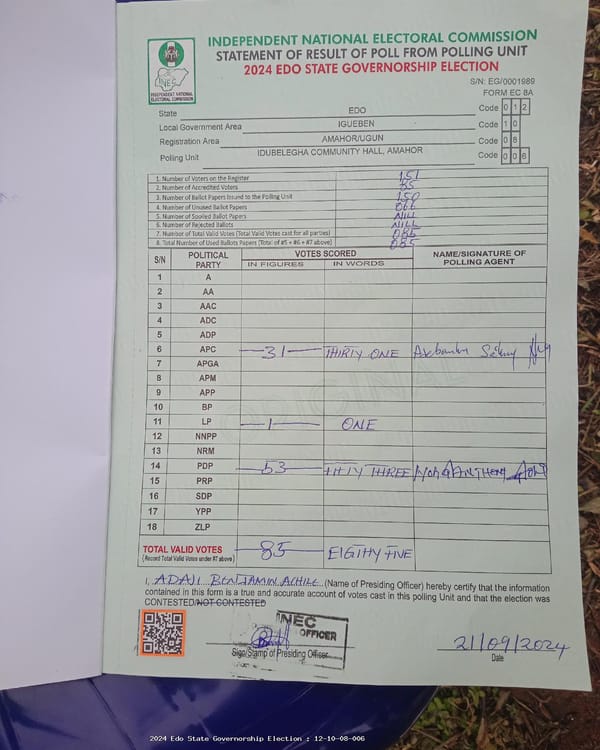 INDEPENDENT NATIONAL ELECTORAL COMMISSION
STATEMENT OF RESULT OF POLL FROM POLLING UNIT
2024 EDO STATE GOVERNORSHIP ELECTION
INEC
INDEPENDENT NATIONAL ELECTORAL COMMISSION
S/N: EG/0001989
FORM EC 8A
State EDO Code 0 1 2
Local Government Area IGUEBEN Code 1 0
Registration Area AMAHOR/UGUN Code 0 8
Polling Unit IDUBELEGHA COMMUNITY HALL, AMAHOR Code 0 0 6
1. Number of Voters on the Register 151
2. Number of Accredited Voters 85
3. Number of Ballot Papers Issued to the Polling Unit 150
4. Number of Unused Ballot Papers
5. Number of Spoiled Ballot Papers NILL
6. Number of Rejected Ballots NILL
7. Number of Total Valid Votes (Total Valid Votes cast for all parties) 085
8. Total Number of Used Ballots Papers (Total of #5 + #6 + #7 above) 085
S/N POLITICAL PARTY VOTES SCORED NAME/SIGNATURE OF POLLING AGENT
IN FIGURES IN WORDS
1 A
2 AA
3 AAC
4 ADC
5 ADP
6 APC 31 THIRTY ONE
7 APGA
8 APM
9 APP
10 BP
11 LP 1 ONE
12 NNPP
13 NRM
14 PDP 53 FIFTY THREE
15 PRP
16 SDP
17 YPP
18 ZLP
ORIGINAL
TOTAL VALID VOTES 85 EIGHTY FIVE
(Record Total Valid Votes under #7 above)
I, ADAJI BENJAMIN ACHILE (Name of Presiding Officer) hereby certify that the information
contained in this form is a true and accurate account of votes cast in this polling Unit and that the election was
CONTESTED/NOT CONTESTED
INEC
OFFICER
Sign/Stamp of Presiding Officer
21/09/2024
Date
2024 Edo State Governorship Election : 12-10-08-006